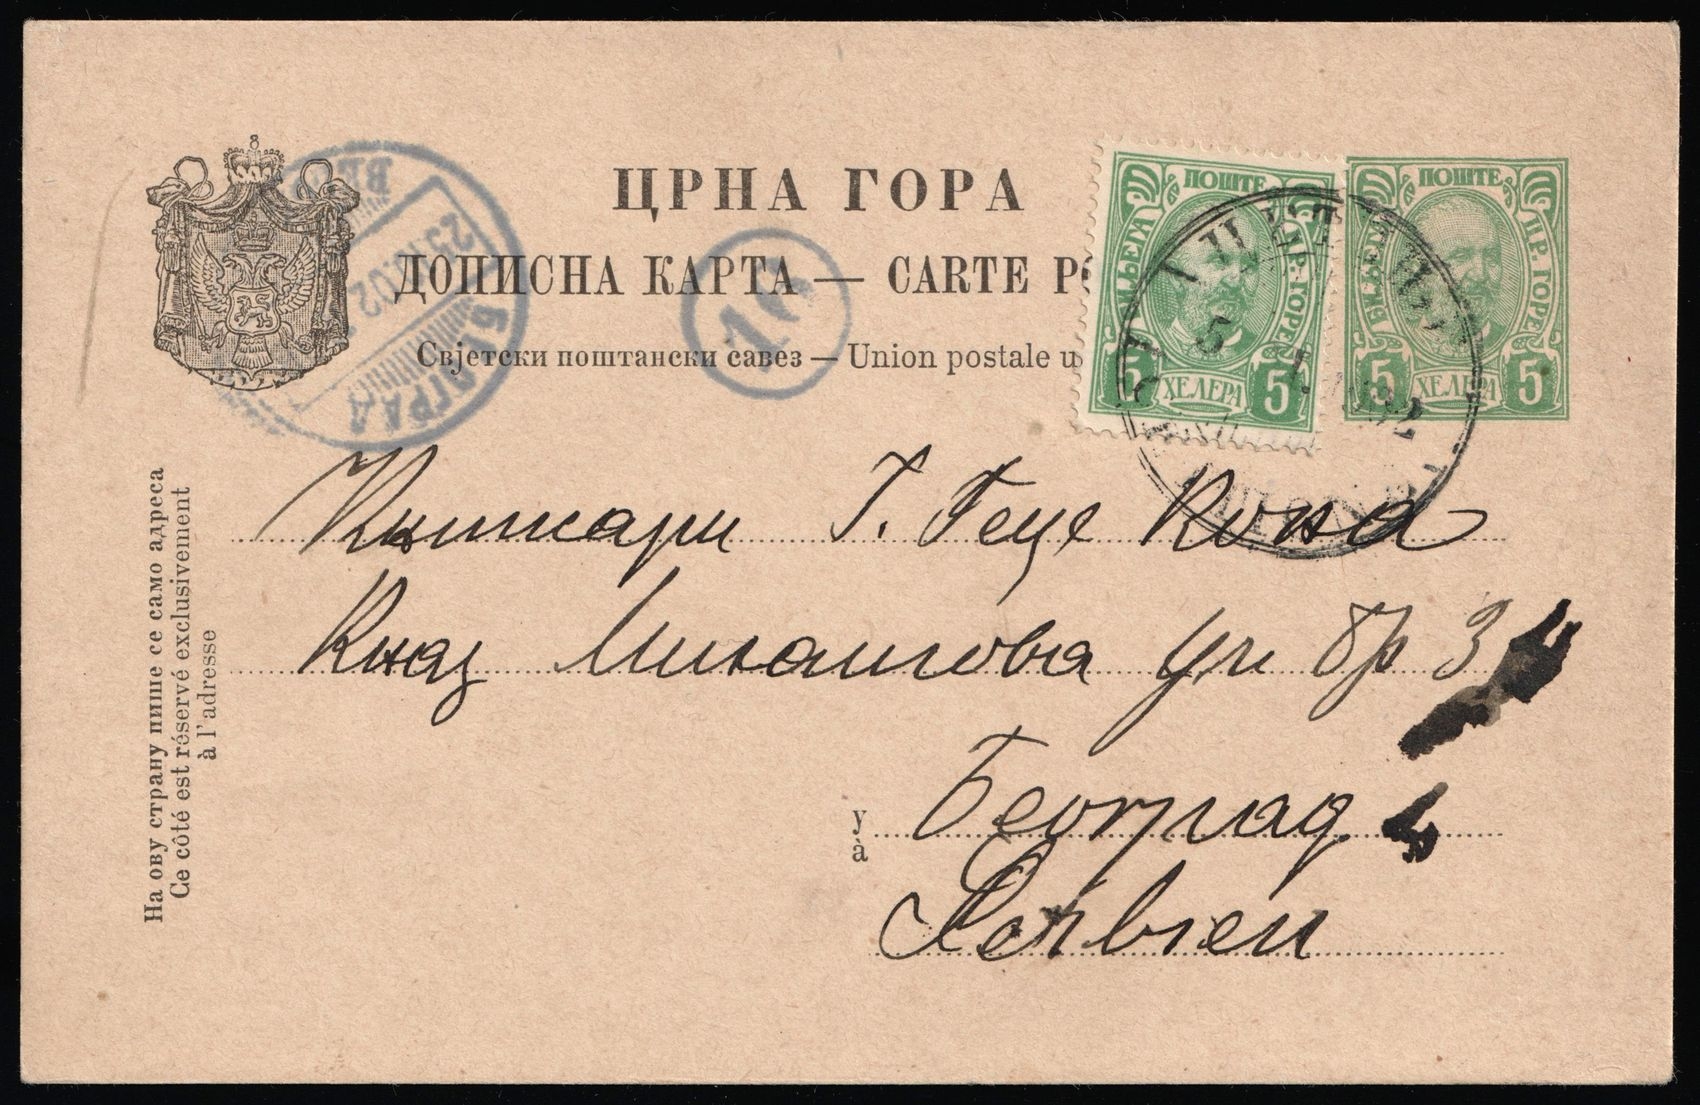 ЦРНА ГОРА
ДОПИСНА КАРТА — CARTE PO
Свјетски поштански савез — Union postale u
БИЉЕГА ПОШТЕ ЦР. ГОРЕ
5 ХЕЛЕРА 5
БИЉЕГА ПОШТЕ ЦР. ГОРЕ
5 ХЕЛЕРА 5
БЕОГРАД
Књижари Г. Геце Кона
Кнез Михаилова ул бр 34
у Београд
à Serbien
На ову страну пише се само адреса
Ce côté est réservé exclusivement
à l'adresse